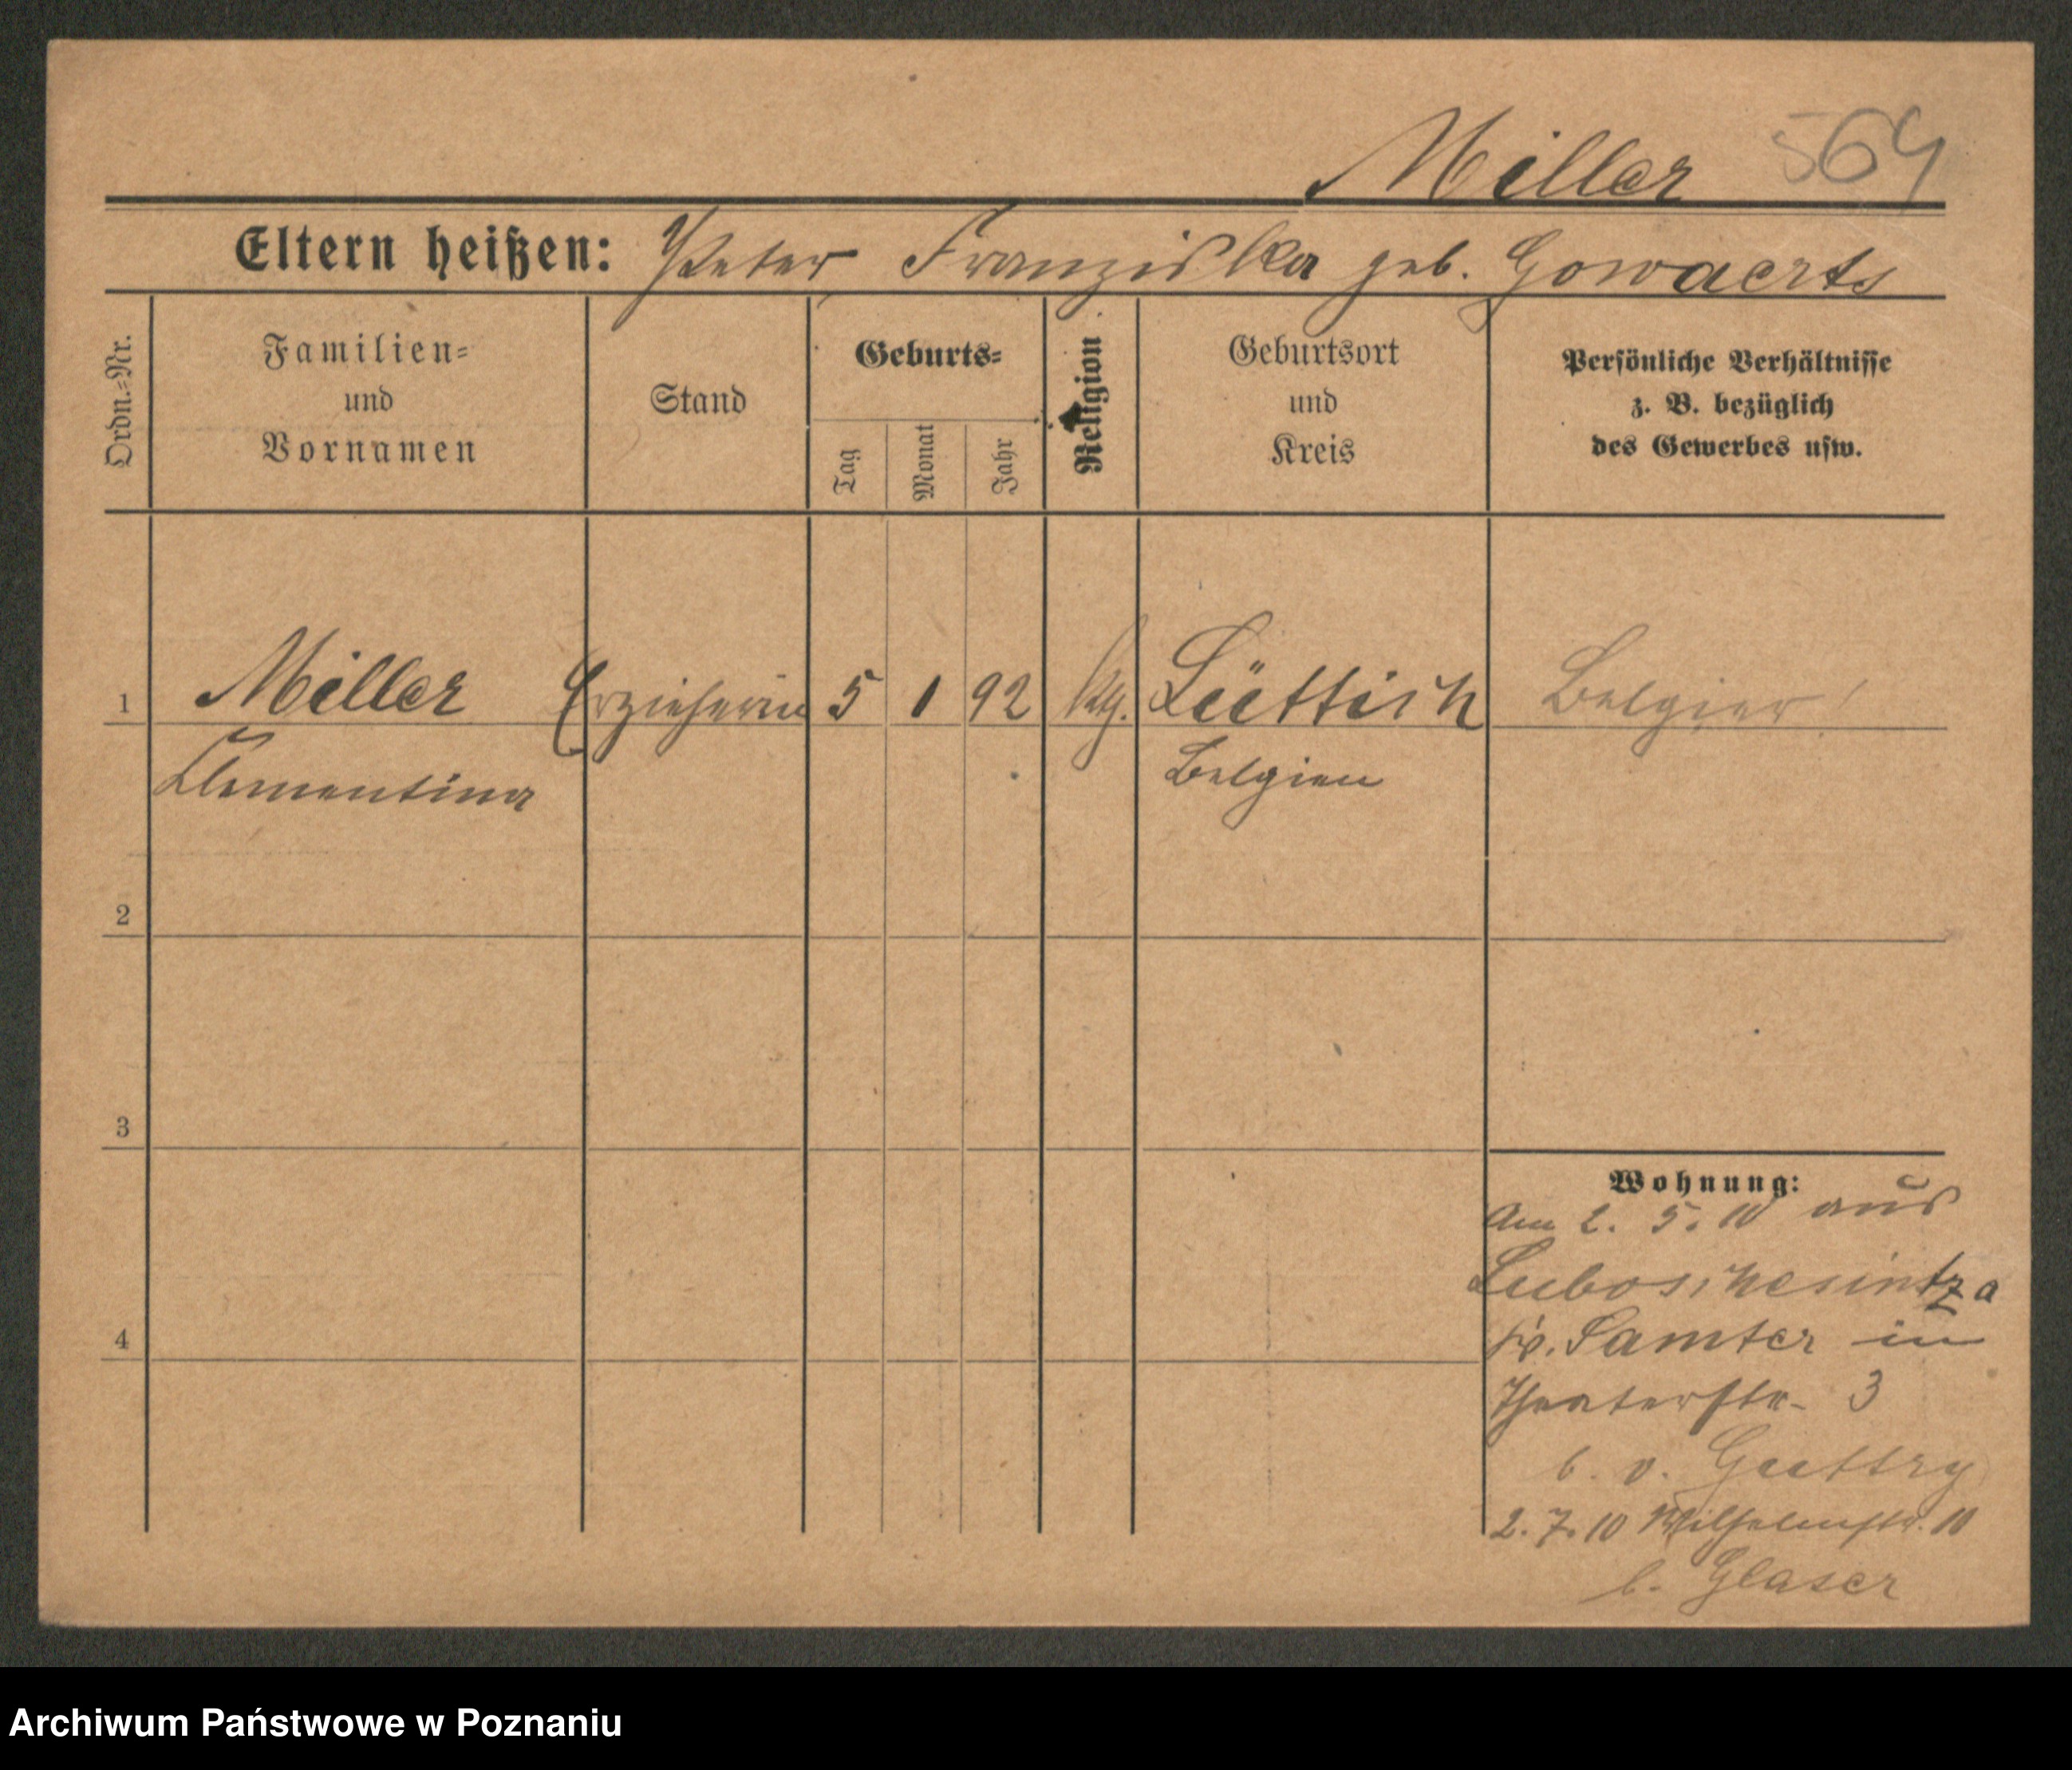 Miller 564
Eltern heißen: Peter Franziska geb. Gowaerts
Ordn.-Nr.
Familien-
und
Vornamen
Stand
Geburts-
Tag
Monat
Jahr
Religion
Geburtsort
und
Kreis
Persönliche Verhältnisse
z. B. bezüglich
des Gewerbes usw.
1 Miller Erzieherin 5 1 92 ktg. Lüttich Belgier
Clementina Belgien
2
3
4
Wohnung:
Am 2. 5. 10 aus
Samter in
Theaterstr. 3
b. v. Guttry
2. 7. 10 Wilhelmstr. 10
b. Glaser
Archiwum Państwowe w Poznaniu